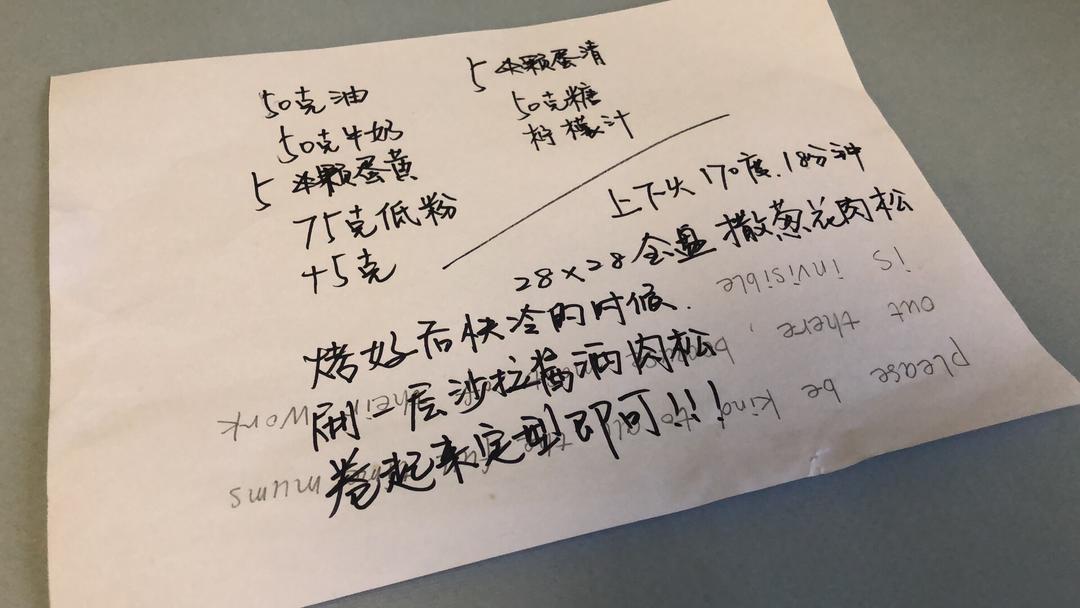 50克油
50克牛奶
5颗蛋黄
75克低粉
+5克
5颗蛋清
50克糖
柠檬汁
上下火170度.18分种
28×28全盘撒葱花肉松
烤好后快冷的时候.
刷一层沙拉酱洒肉松
卷起来定型即可!!!
please be kind to all the mums
out there,
is invisible